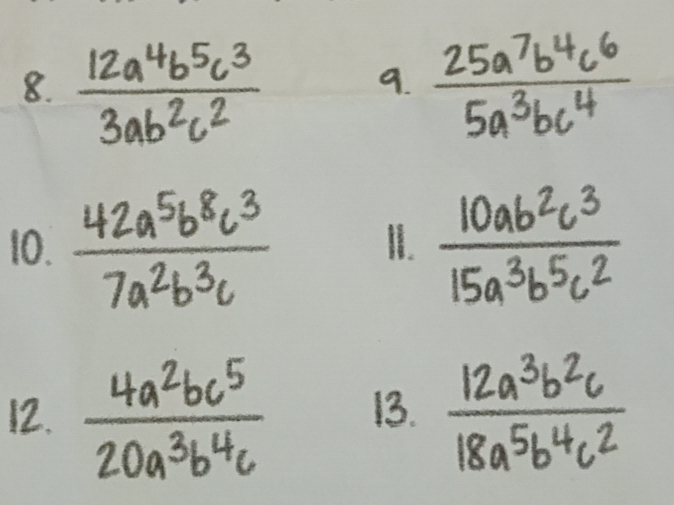 8. 12a⁴b⁵c³ / 3ab²c²
9. 25a⁷b⁴c⁶ / 5a³bc⁴
10. 42a⁵b⁸c³ / 7a²b³c
11. 10ab²c³ / 15a³b⁵c²
12. 4a²bc⁵ / 20a³b⁴c
13. 12a³b²c / 18a⁵b⁴c²